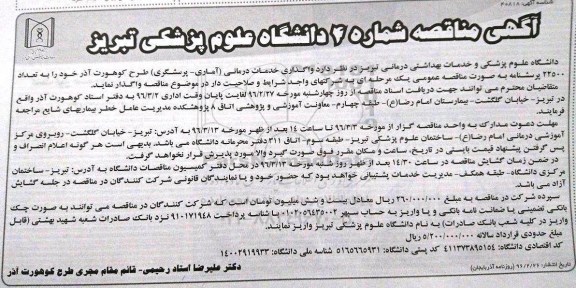 شناسه آگهی: ۳۸۸۱۸
آگهی مناقصه شماره ۴ دانشگاه علوم پزشکی تبریز
دانشگاه علوم پزشکی و خدمات بهداشتی درمانی تبریز در نظر دارد واگذاری خدمات درمانی (آماری- پرسشگری) طرح کوهورت آذر خود را به تعداد
۲۲۵۰۰ پرسشنامه به صورت مناقصه عمومی یک مرحله ای به شرکتهای واجد شرایط و صلاحیت دار در موضوع مناقصه واگذار نماید.
متقاضیان محترم می توانند جهت دریافت اسناد مناقصه از روز چهارشنبه مورخه ۹۶/۲/۲۷ لغایت پایان وقت اداری ۹۶/۳/۲ به دفتر استاد کوهورت آذر واقع
در تبریز- خیابان گلگشت- بیمارستان امام رضا(ع)- طبقه چهارم- معاونت آموزشی و پژوهشی اتاق ۸ پژوهشکده مدیریت عامل خطر بیماریهای شایع مراجعه
فرمایند.
مهلت دعوت مدارک به واحد مناقصه گزار از مورخه ۹۶/۳/۳ تا ساعت ۱۴ بعد از ظهر مورخه ۹۶/۳/۱۳ به آدرس: تبریز- خیابان گلگشت- روبروی مرکز
آموزشی درمانی امام رضا(ع)- ساختمان علوم پزشکی تبریز- طبقه سوم- اتاق ۳۱۱ دفتر محرمانه دانشگاه می باشد. بدیهی است هر گونه اعلام انصراف و
پس گرفتن پیشنهاد قیمت بایستی در تاریخ، ساعت و مکان مقرر فوق صورت گیرد والا مورد پذیرش قرار نخواهد گرفت.
در ضمن زمان گشایش مناقصه در ساعت ۱۴/۳۰ بعد از ظهر روز شنبه مورخه ۹۶/۳/۱۳ در محل دفتر کمیسیون مناقصات دانشگاه به آدرس: تبریز- ساختمان
مرکزی دانشگاه- طبقه همکف- مدیریت خدمات پشتیبانی خواهد بود که حضور خود و یا نمایندگان قانونی شرکت کنندگان در مناقصه در جلسه گشایش
آزاد می باشد.
سپرده شرکت در مناقصه به مبلغ ۲۶۰/۰۰۰/۰۰۰ ریال معادل بیست و شش میلیون تومان است که شرکت کنندگان در مناقصه می توانند به صورت چک
بانکی تضمینی یا ضمانت نامه بانکی و یا واریز به حساب سپهر ۰۱۰۲۰۵۶۴۳۵۰۰۲ با شناسه پرداخت ۹۱۰۱۷۱۹۴۸ نزد بانک صادرات شعبه شهید بهشتی (قابل
واریز در کلیه شعب بانک صادرات) به نام دانشگاه علوم پزشکی تبریز واریز نمایند.
مبلغ حدودی قرارداد سالانه ۵/۲۰۰/۰۰۰/۰۰۰ ریال
کد اقتصادی دانشگاه: ۴۱۱۳۷۳۸۹۵۱۵۴ کد پستی دانشگاه: ۵۱۶۵۶۶۵۹۳۱ شناسه ملی دانشگاه: ۱۴۰۰۲۹۱۹۹۳۳
دکتر علیرضا استاد رحیمی- قائم مقام مجری طرح کوهورت آذر
تاریخ انتشار: ۹۶/۲/۲۷ (روزنامه آذربایجان)